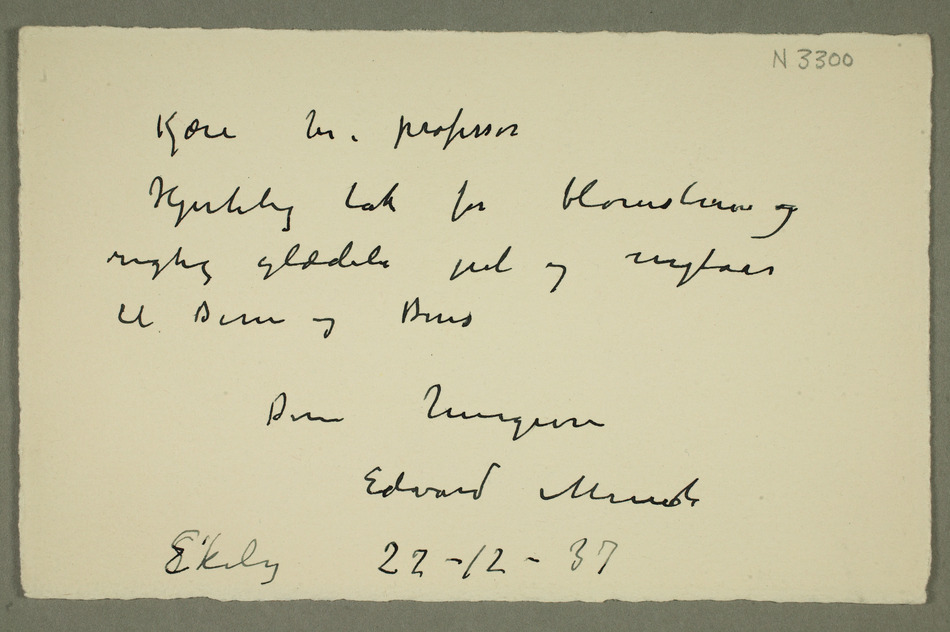 N 3300
Kjære hr. professor
Hjertelig tak for blomsterne og
rigtig glædelig jul og nytaar
til Dem og Deres
Deres hengivne
Edvard Munch
Ekely 22-12-37